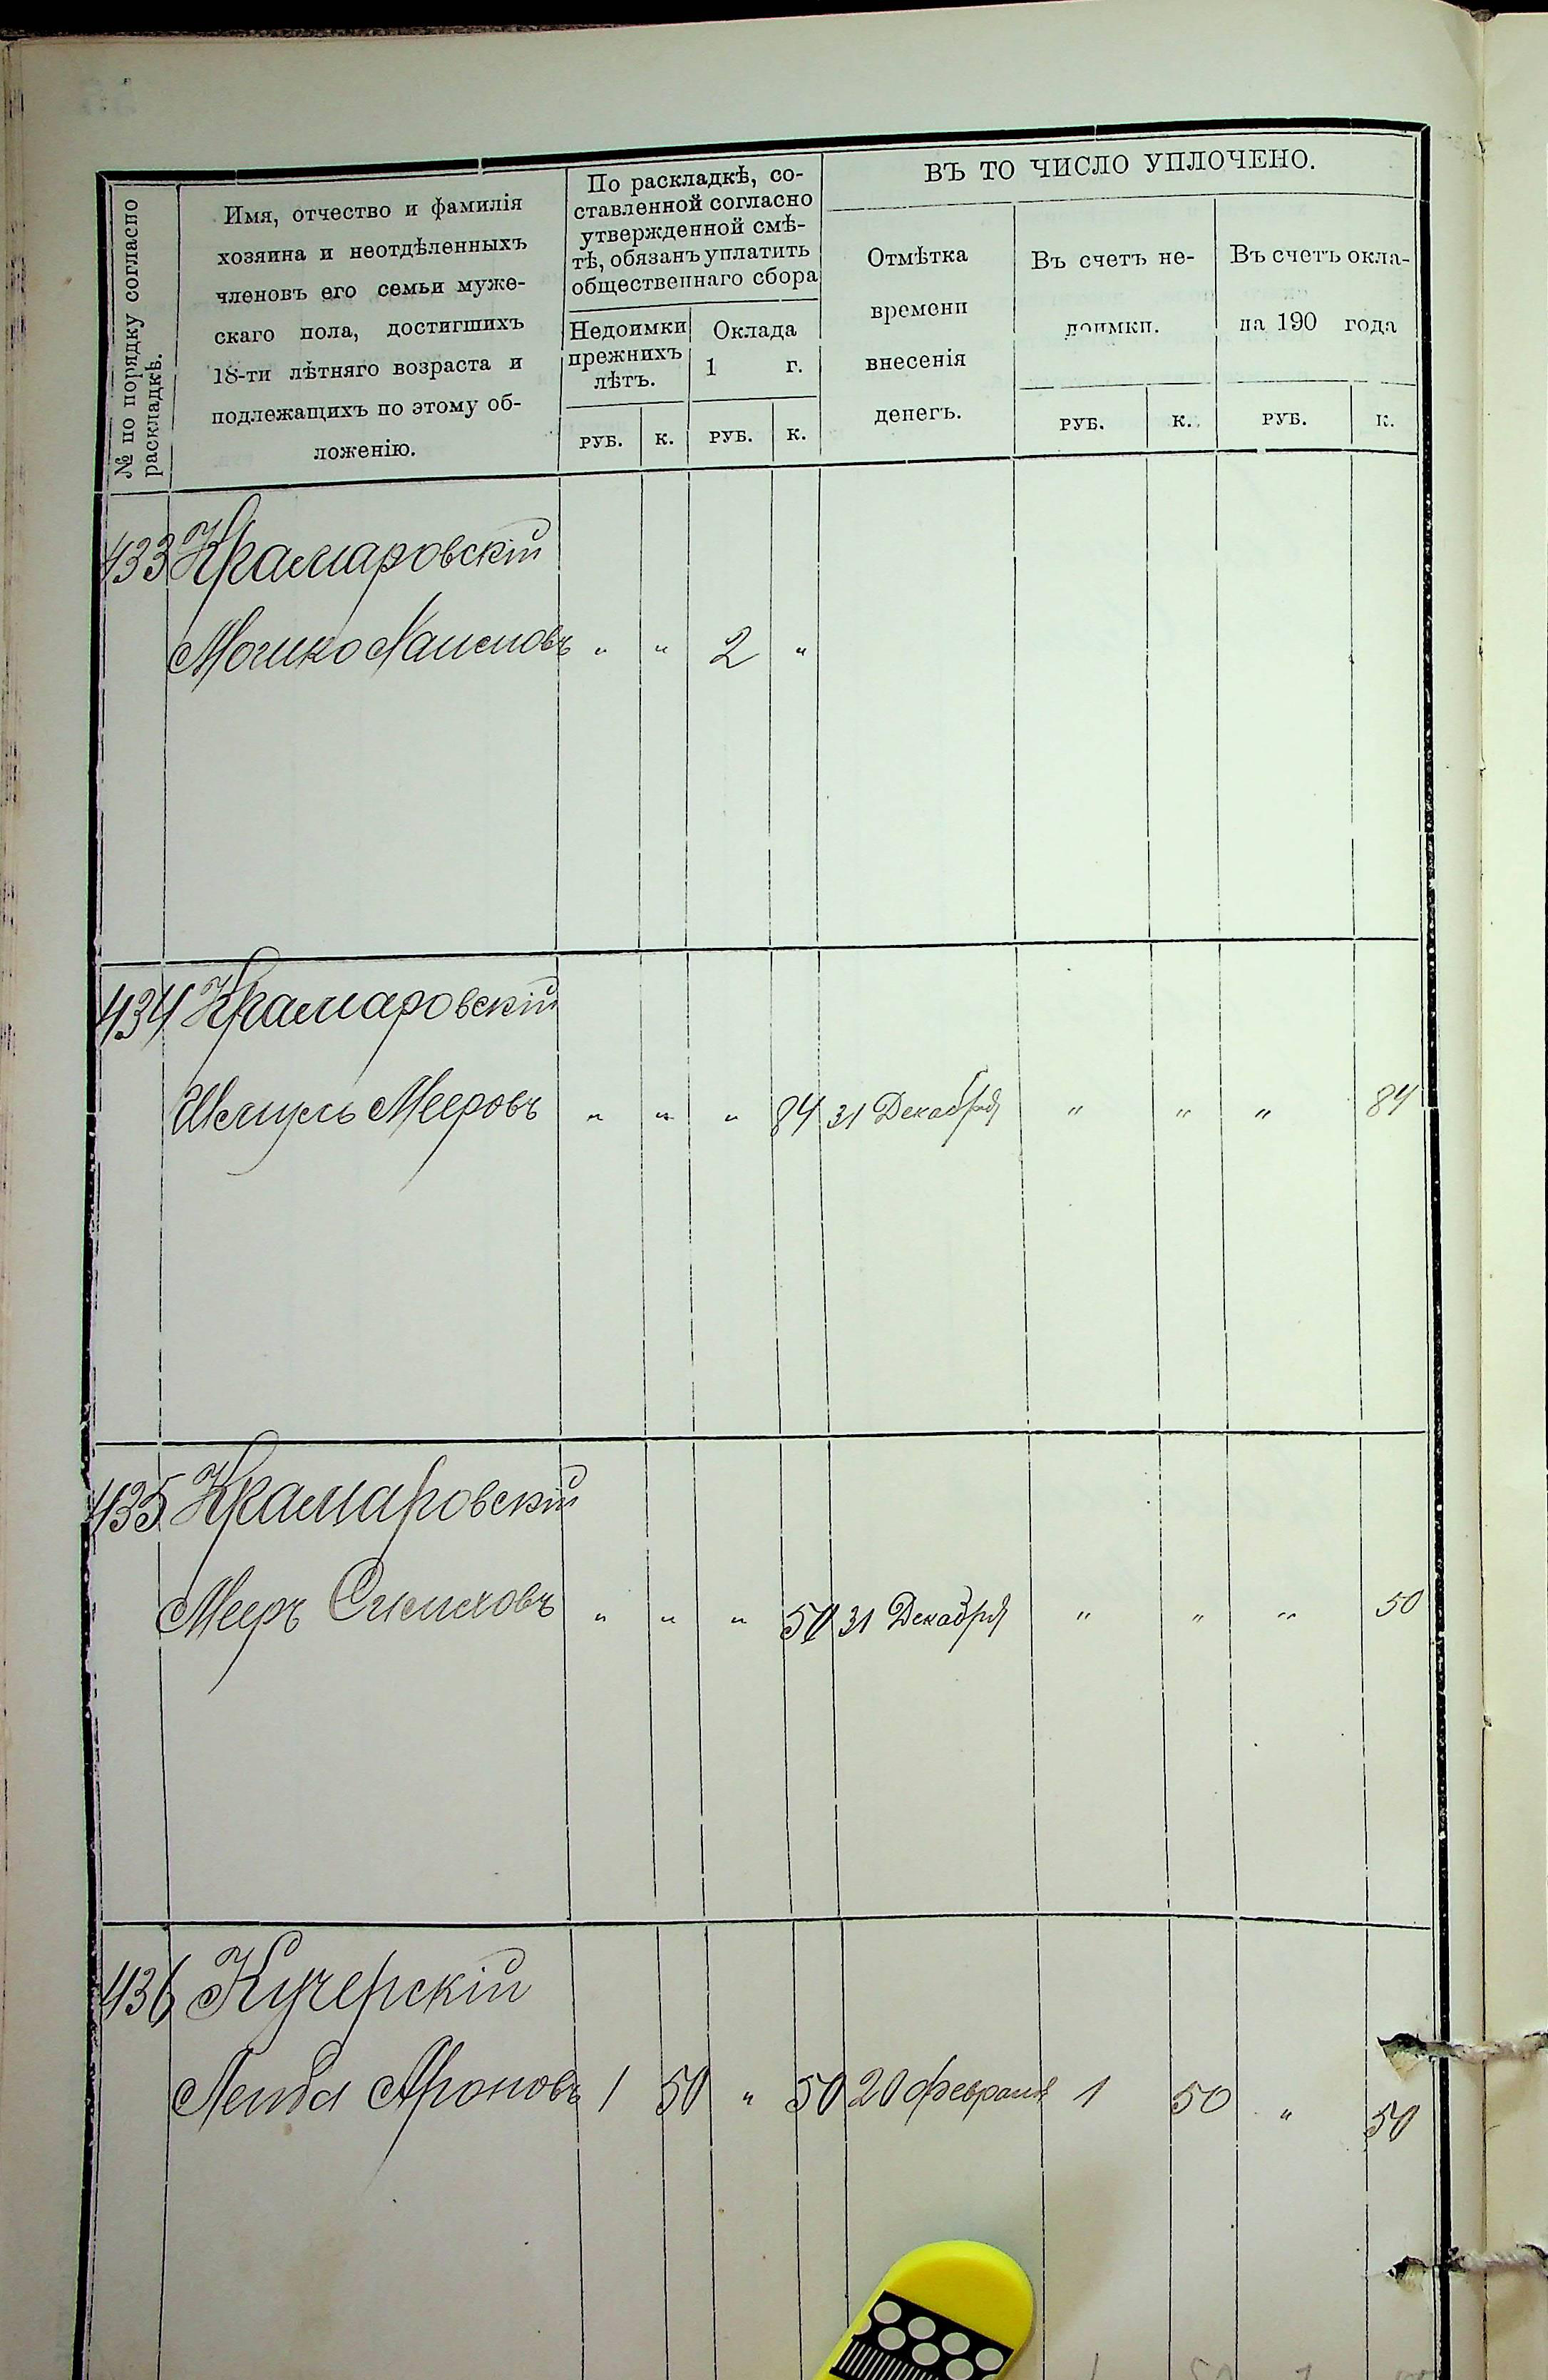 № по порядку согласно
раскладкѣ.
Имя, отчество и фамилія
хозяина и неотдѣленныхъ
членовъ его семьи муже-
скаго пола, достигшихъ
18-ти лѣтняго возраста и
подлежащихъ по этому об-
ложенію.
По раскладкѣ, со-
ставленной согласно
утвержденной смѣ-
тѣ, обязанъ уплатить
общественнаго сбора
Недоимки
прежнихъ
лѣтъ.
Оклада
1 г.
РУБ. К. РУБ. К.
ВЪ ТО ЧИСЛО УПЛОЧЕНО.
Отмѣтка
времени
внесенія
денегъ.
Въ счетъ не-
доимки.
РУБ. К.
Въ счетъ окла-
на 190 года
РУБ. К.
433 Крамаровскій
Мошко " " 2 "
434 Крамаровскій
Шмуль Мееровъ " " " 84 31 Декабря " " " 84
435 Крамаровскій
Мееръ " " " 50 31 Декабря " " " 50
436 Кучерскій
Лейба Ароновъ 1 50 " 50 20 февраля 1 50 " 50